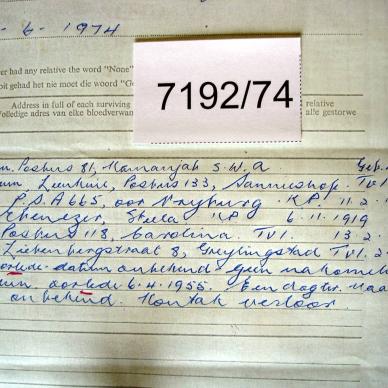 -6-1974
er had any relative the word "None"
oit gehad het nie moet die woord "Ge
7192/74
Address in full of each surviving relative
Volledige adres van elke bloedverwan alle gestorwe
Posbus 81, Kamanjab S.W.A Geb.
Posbus 133, Sannieshof. Tvl
P.S.A 665, oor Vryburg K.P. 11.2.1
Ebenezer, Stella KP 6-11-1919
Posbus 118, Carolina TVl. 13.2.
Liebenbergstraat 8, Greylingstad TVl. 2-
oorlede-datum onbekend-geen nakomeli
oorlede 6.4.1955. Een dogter. Naa
onbekend. Kontak verloor.